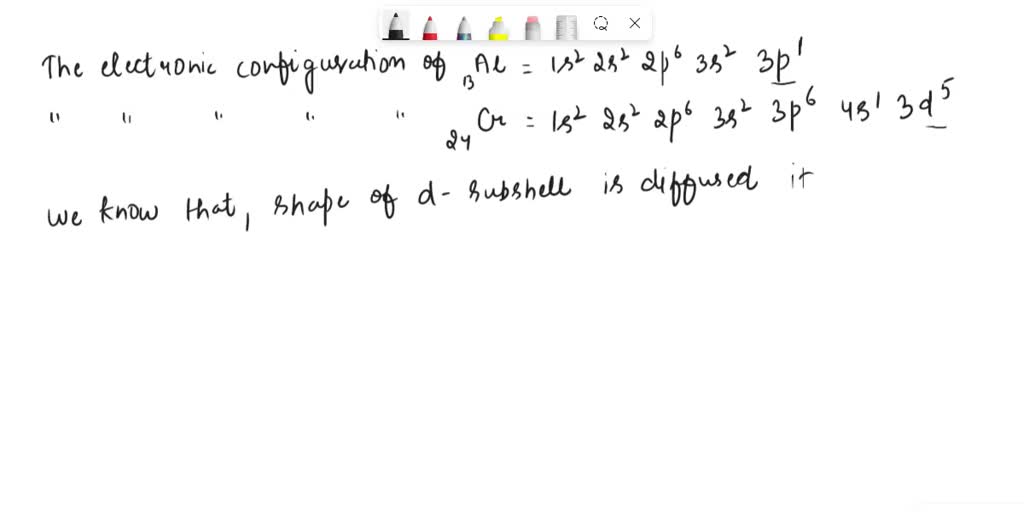 The electronic configuration of ₁₃Al = 1s² 2s² 2p⁶ 3s² 3p¹
" " " " " ₂₄Cr = 1s² 2s² 2p⁶ 3s² 3p⁶ 4s¹ 3d⁵
we know that, shape of d- subshell is diffused it